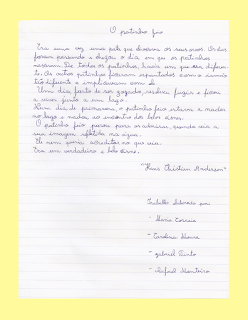 O patinho feio
Era uma vez uma pata que chocava os seus ovos. Os dias
foram passando e chegou o dia em que os patinhos
nasceram. De todos os patinhos, havia um que era diferen-
te. Os outros patinhos ficaram espantados com o irmão
tão diferente e implicavam com ele.
Um dia, farto de ser gozado, resolveu fugir e ficou
a viver junto a um lago.
Num dia de primavera, o patinho feio estava a nadar
no lago e nadou ao encontro dos belos cisnes.
O patinho feio parou para os admirar, quando viu a
sua imagem refletida na água.
Ele nem queria acreditar no que via.
Era um verdadeiro e belo cisne.
"Hans Christian Andersen"
Trabalho elaborado por:
- Maria Correia
- Carolina Moura
- Gabriel Pinto
- Rafael Monteiro